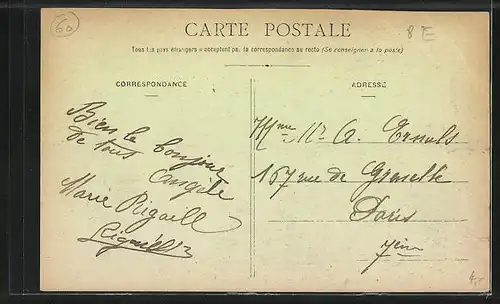 60
8 E
CARTE POSTALE
Tous les pays étrangers n'acceptent pas la correspondance au recto (Se renseigner à la poste)
CORRESPONDANCE
ADRESSE
Bien le bonjour
de tous
Angèle
Marie Rigaill
Mme A.
167 rue de Grenelle
Paris
7ème
4,-